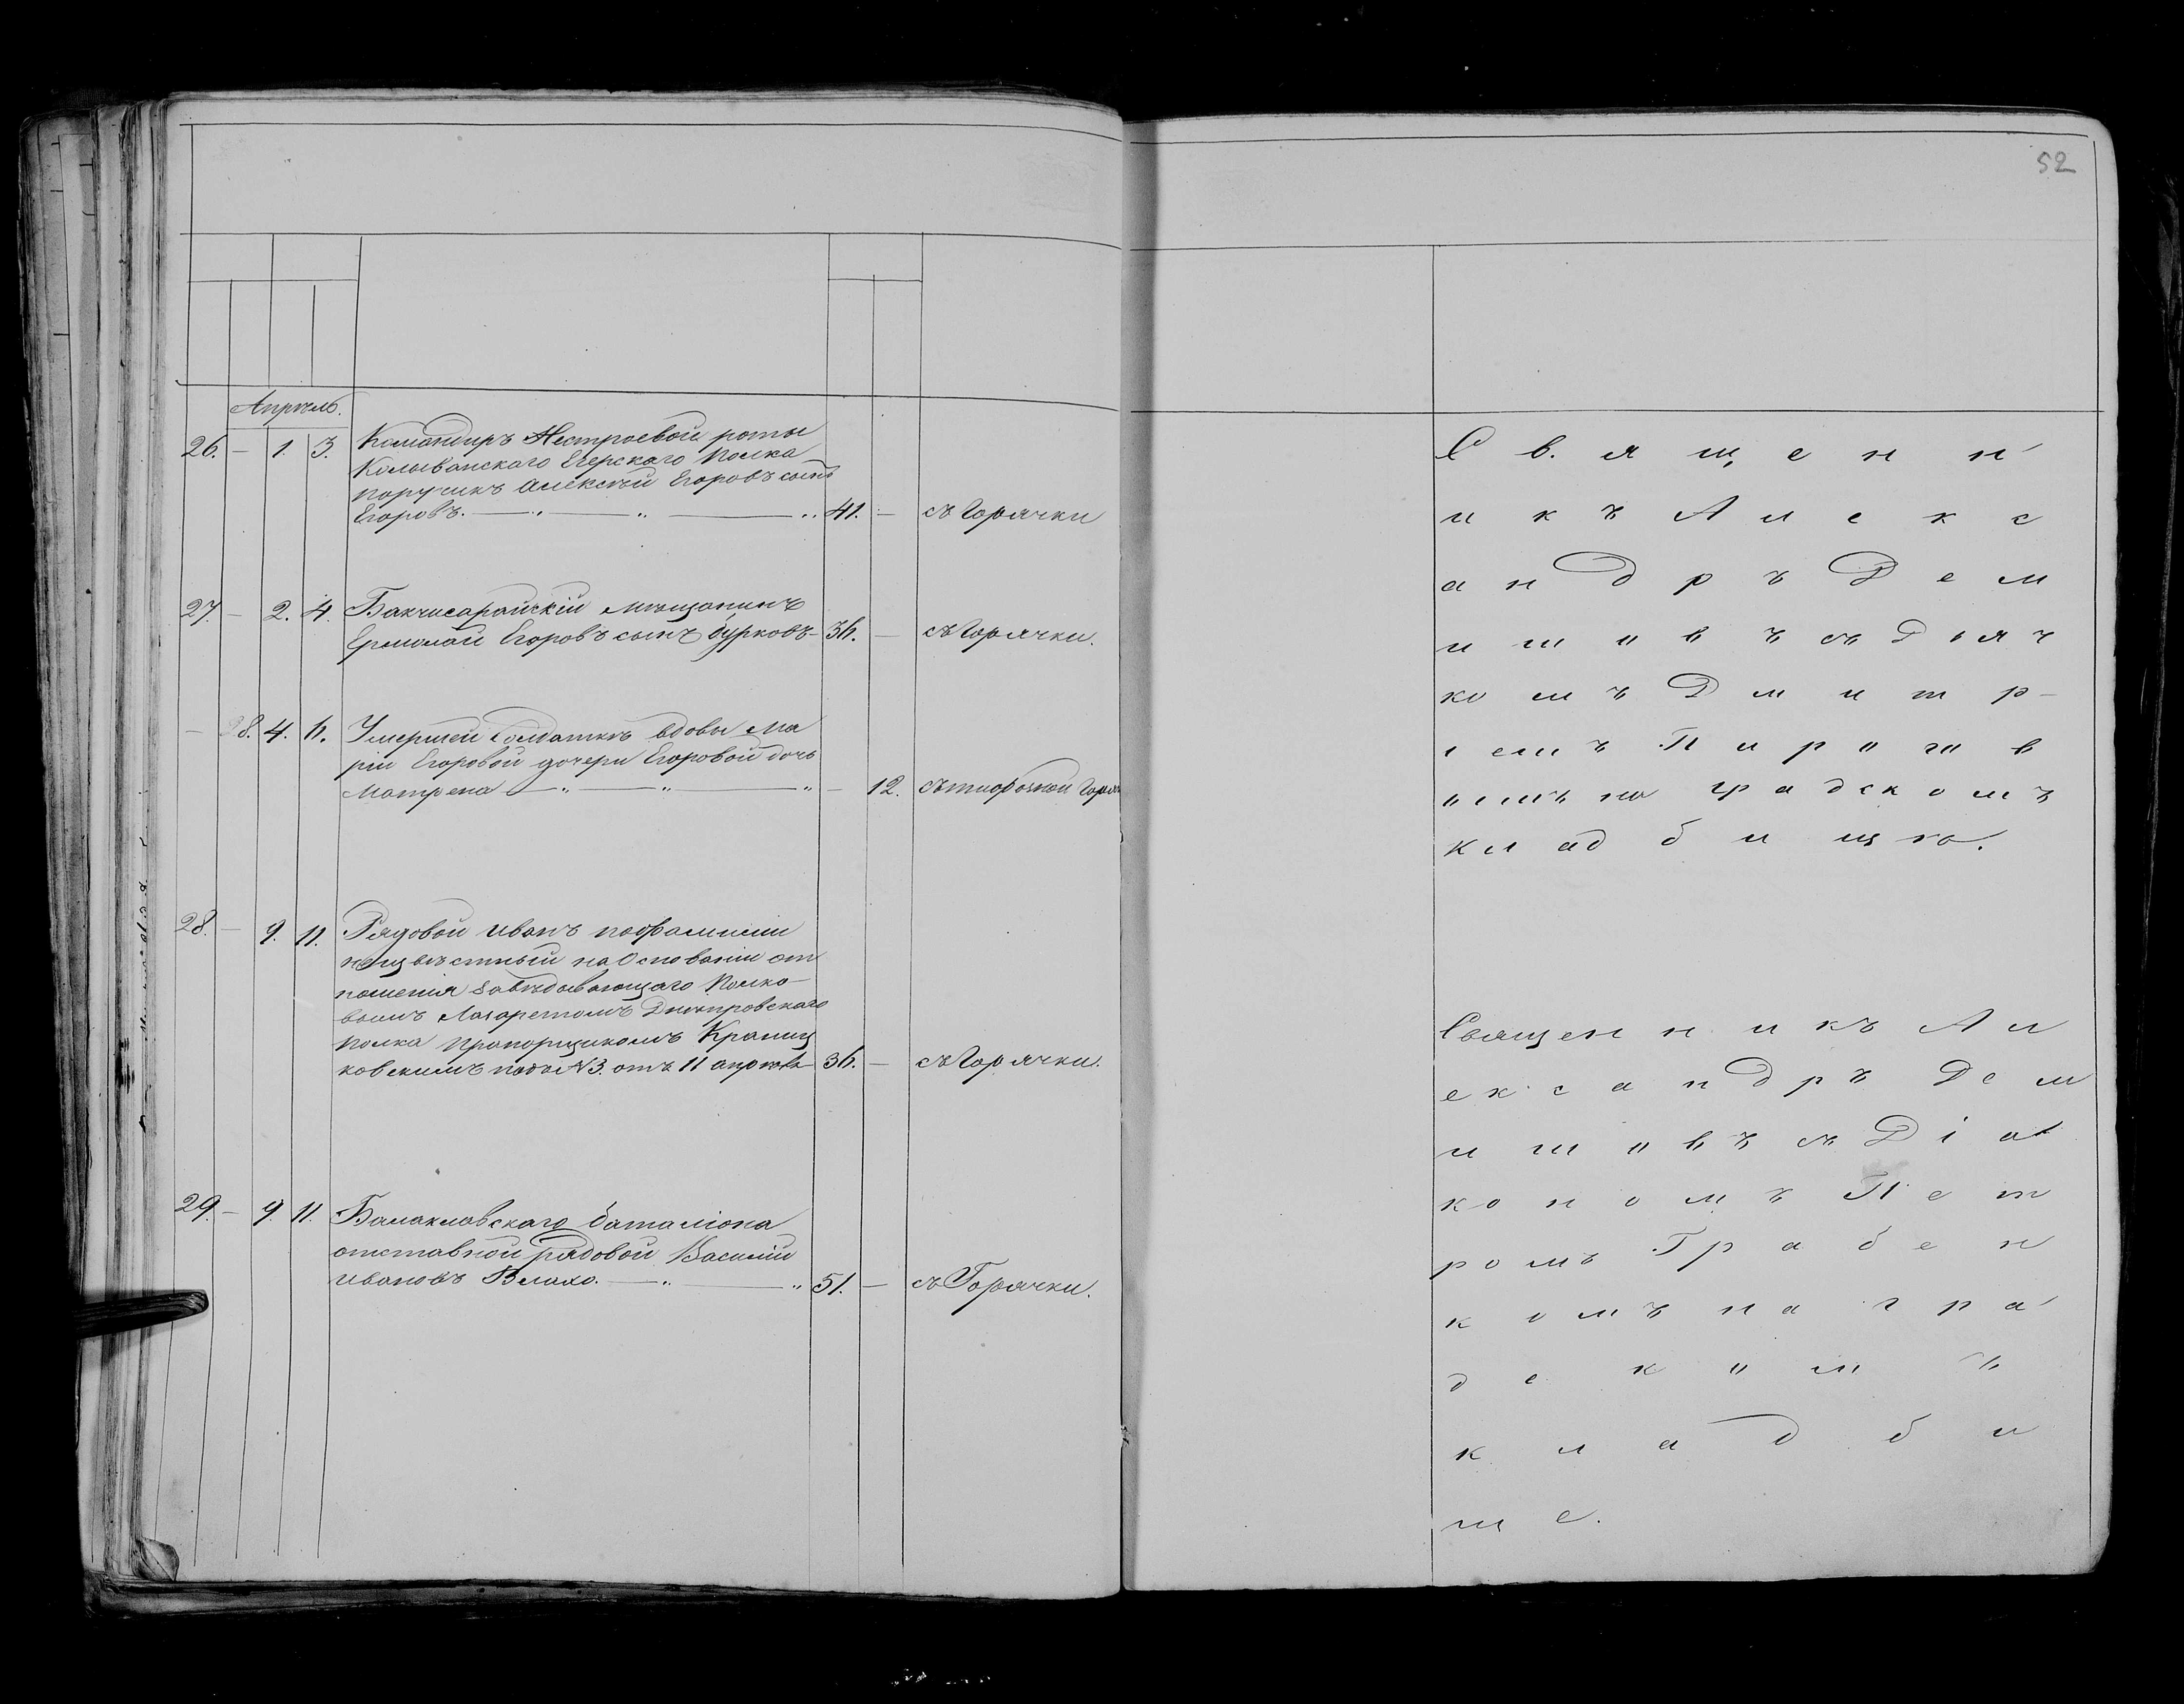 52
Апрѣль.
26. — 1. 3. Командиръ Нестроевой роты
Колыванскаго Егерскаго полка
порутчикъ Алексѣй Егоровъ сынъ
Егоровъ. — „ — „ — „ 41. — съ Горячки
27. — 2. 4. Бакчисарайскій мѣщанинъ
Ермолай Егоровъ сынъ Бурковъ — 36. — съ Горячки.
— 28. 4. 6. Умершей Солдатки вдовы Ма
ріи Егоровой дочери Егоровой дочь
Матрена — „ — „ — „ — 12. съ тифозной Горяч
28. — 9. 11. Рядовой Иванъ по фамиліи
неизвѣстный на Основаніи от
ношенія Завѣдывающаго Полко
вымъ Лазаретомъ Днѣпровскаго
полка Прапорщикомъ
ковскимъ подъ N 3. отъ 11 апрѣля — 36. — съ Горячки.
29. — 9. 11. Балаклавскаго баталіона
отставной рядовой Василій
Ивановъ Влахо. — „ — „ 51. — съ Горячки.
С в я щ е н н
и к ъ А л е к с
а н д р ъ Д е м
и ш о в ъ съ Д ь я ч
ко м ъ Д м и т р
і ем ъ П и р о г о в
ымъ на град с к о м ъ
кл ад б и щ ѣ.
Священ н и къ А л
е к с а н д р ъ Д е м
и ш о в ъ съ Д і а
ко н о м ъ П е т
ро мъ Г р а б е н
к о мъ на г р а
д с к о м ъ
к л а д б и
щ е.